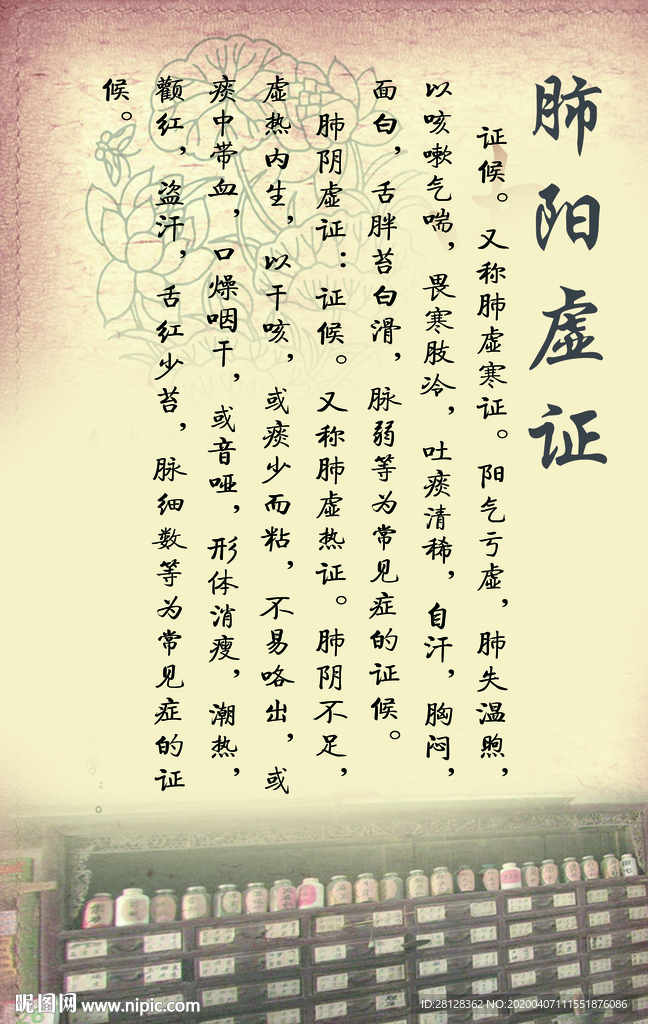 肺阳虚证
证候。又称肺虚寒证。阳气亏虚，肺失温煦，
以咳嗽气喘，畏寒肢冷，吐痰清稀，自汗，胸闷，
面白，舌胖苔白滑，脉弱等为常见症的证候。
肺阴虚证：证候。又称肺虚热证。肺阴不足，
虚热内生，以干咳，或痰少而粘，不易咯出，或
痰中带血，口燥咽干，或音哑，形体消瘦，潮热，
颧红，盗汗，舌红少苔，脉细数等为常见症的证
候。
昵图网 www.nipic.com
ID:28128362 NO:20200407111551876086